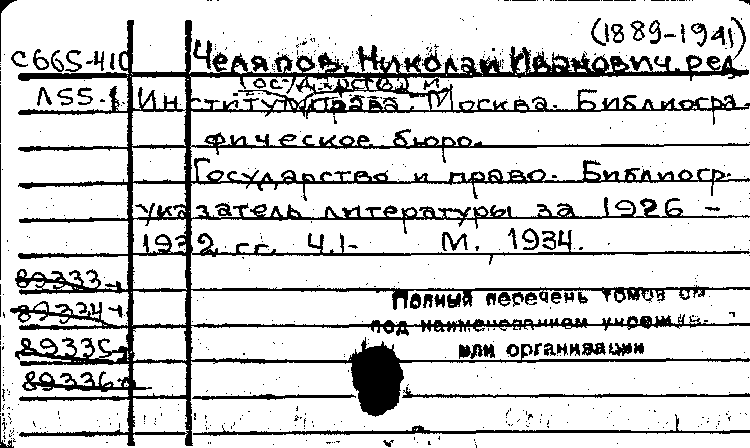 (1889-1941)
С665-410 Челяпов, Николай Иванович, ред.
Государства и
Л55-1 Институт права. Москва. Библиогра
фическое бюро.
Государство и право. Библиогр.
указатель литературы за 1926 –
1932 гг. Ч.1- М., 1934.
89333-1
89334-1
89335-1
89336-
Полный перечень томов см.
под наименованием учрежде-
или организации